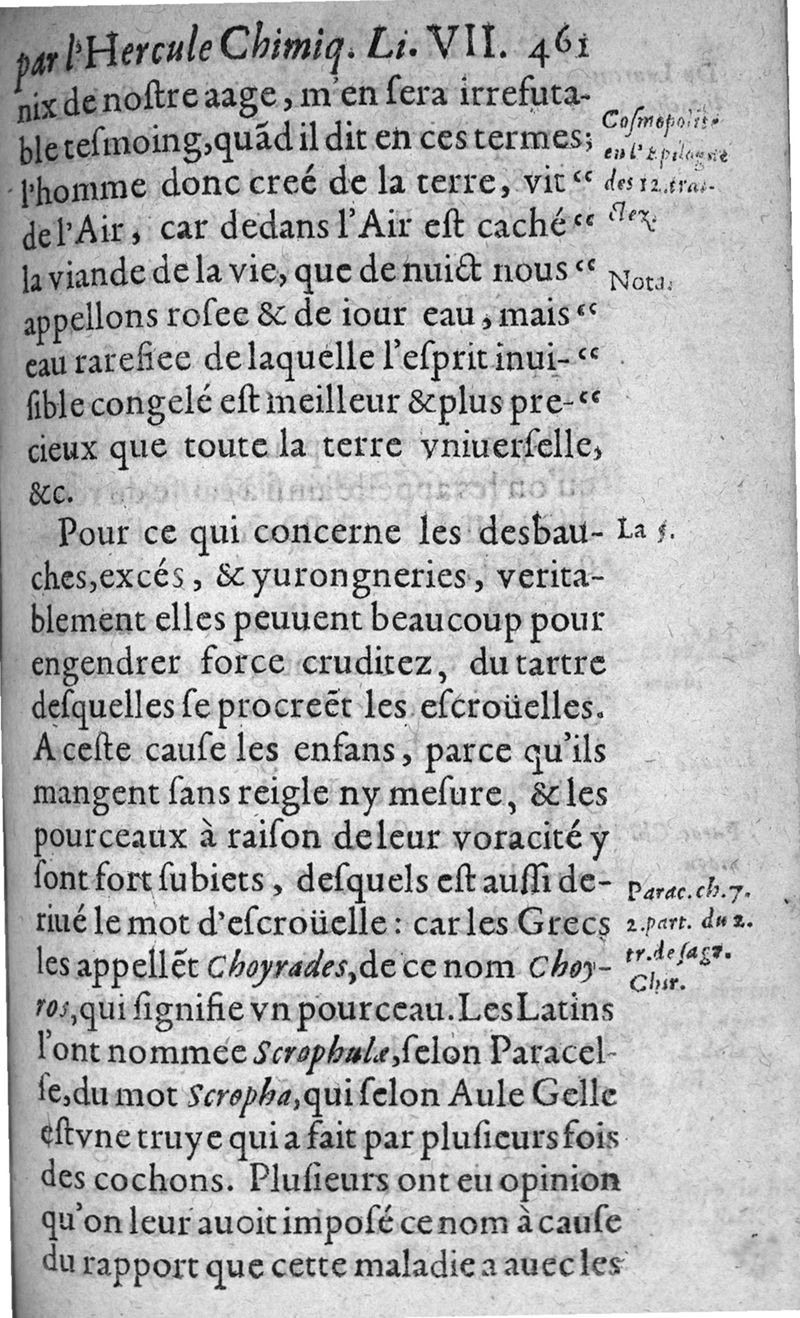 par l'Hercule Chimiq. Li. VII. 461
nix de noſtre aage, m'en ſera irrefuta-
ble teſmoing, quãd il dit en ces termes;
l'homme donc creé de la terre, vit “
de l'Air, car dedans l'Air eſt caché “
la viande de la vie, que de nuict nous “
appellons roſee & de iour eau, mais “
eau rarefiee de laquelle l'eſprit inui- “
ſible congelé eſt meilleur & plus pre- “
cieux que toute la terre vniuerſelle,
&c.
Pour ce qui concerne les desbau-
ches, excés, & yurongneries, verita-
blement elles peuuent beaucoup pour
engendrer force cruditez, du tartre
deſquelles ſe procreẽt les eſcroüelles.
A ceſte cauſe les enfans, parce qu'ils
mangent ſans reigle ny meſure, & les
pourceaux à raiſon de leur voracité y
ſont fort ſubiets, deſquels eſt auſſi de-
riué le mot d'eſcroüelle : car les Grecs
les appellẽt Choyrades, de ce nom Choy-
ros, qui ſignifie vn pourceau. Les Latins
l'ont nommee Scrophulæ, ſelon Paracel-
ſe, du mot Scropha, qui ſelon Aule Gelle
eſt vne truye qui a fait par pluſieurs fois
des cochons. Pluſieurs ont eu opinion
qu'on leur auoit impoſé ce nom à cauſe
du rapport que cette maladie a auec les
Coſmopolite
en l'Epilogue
des 12. trai-
ctez.
Nota.
La 5.
Parac. ch. 7.
2. part. du 2.
tr. de ſa gr.
Chir.